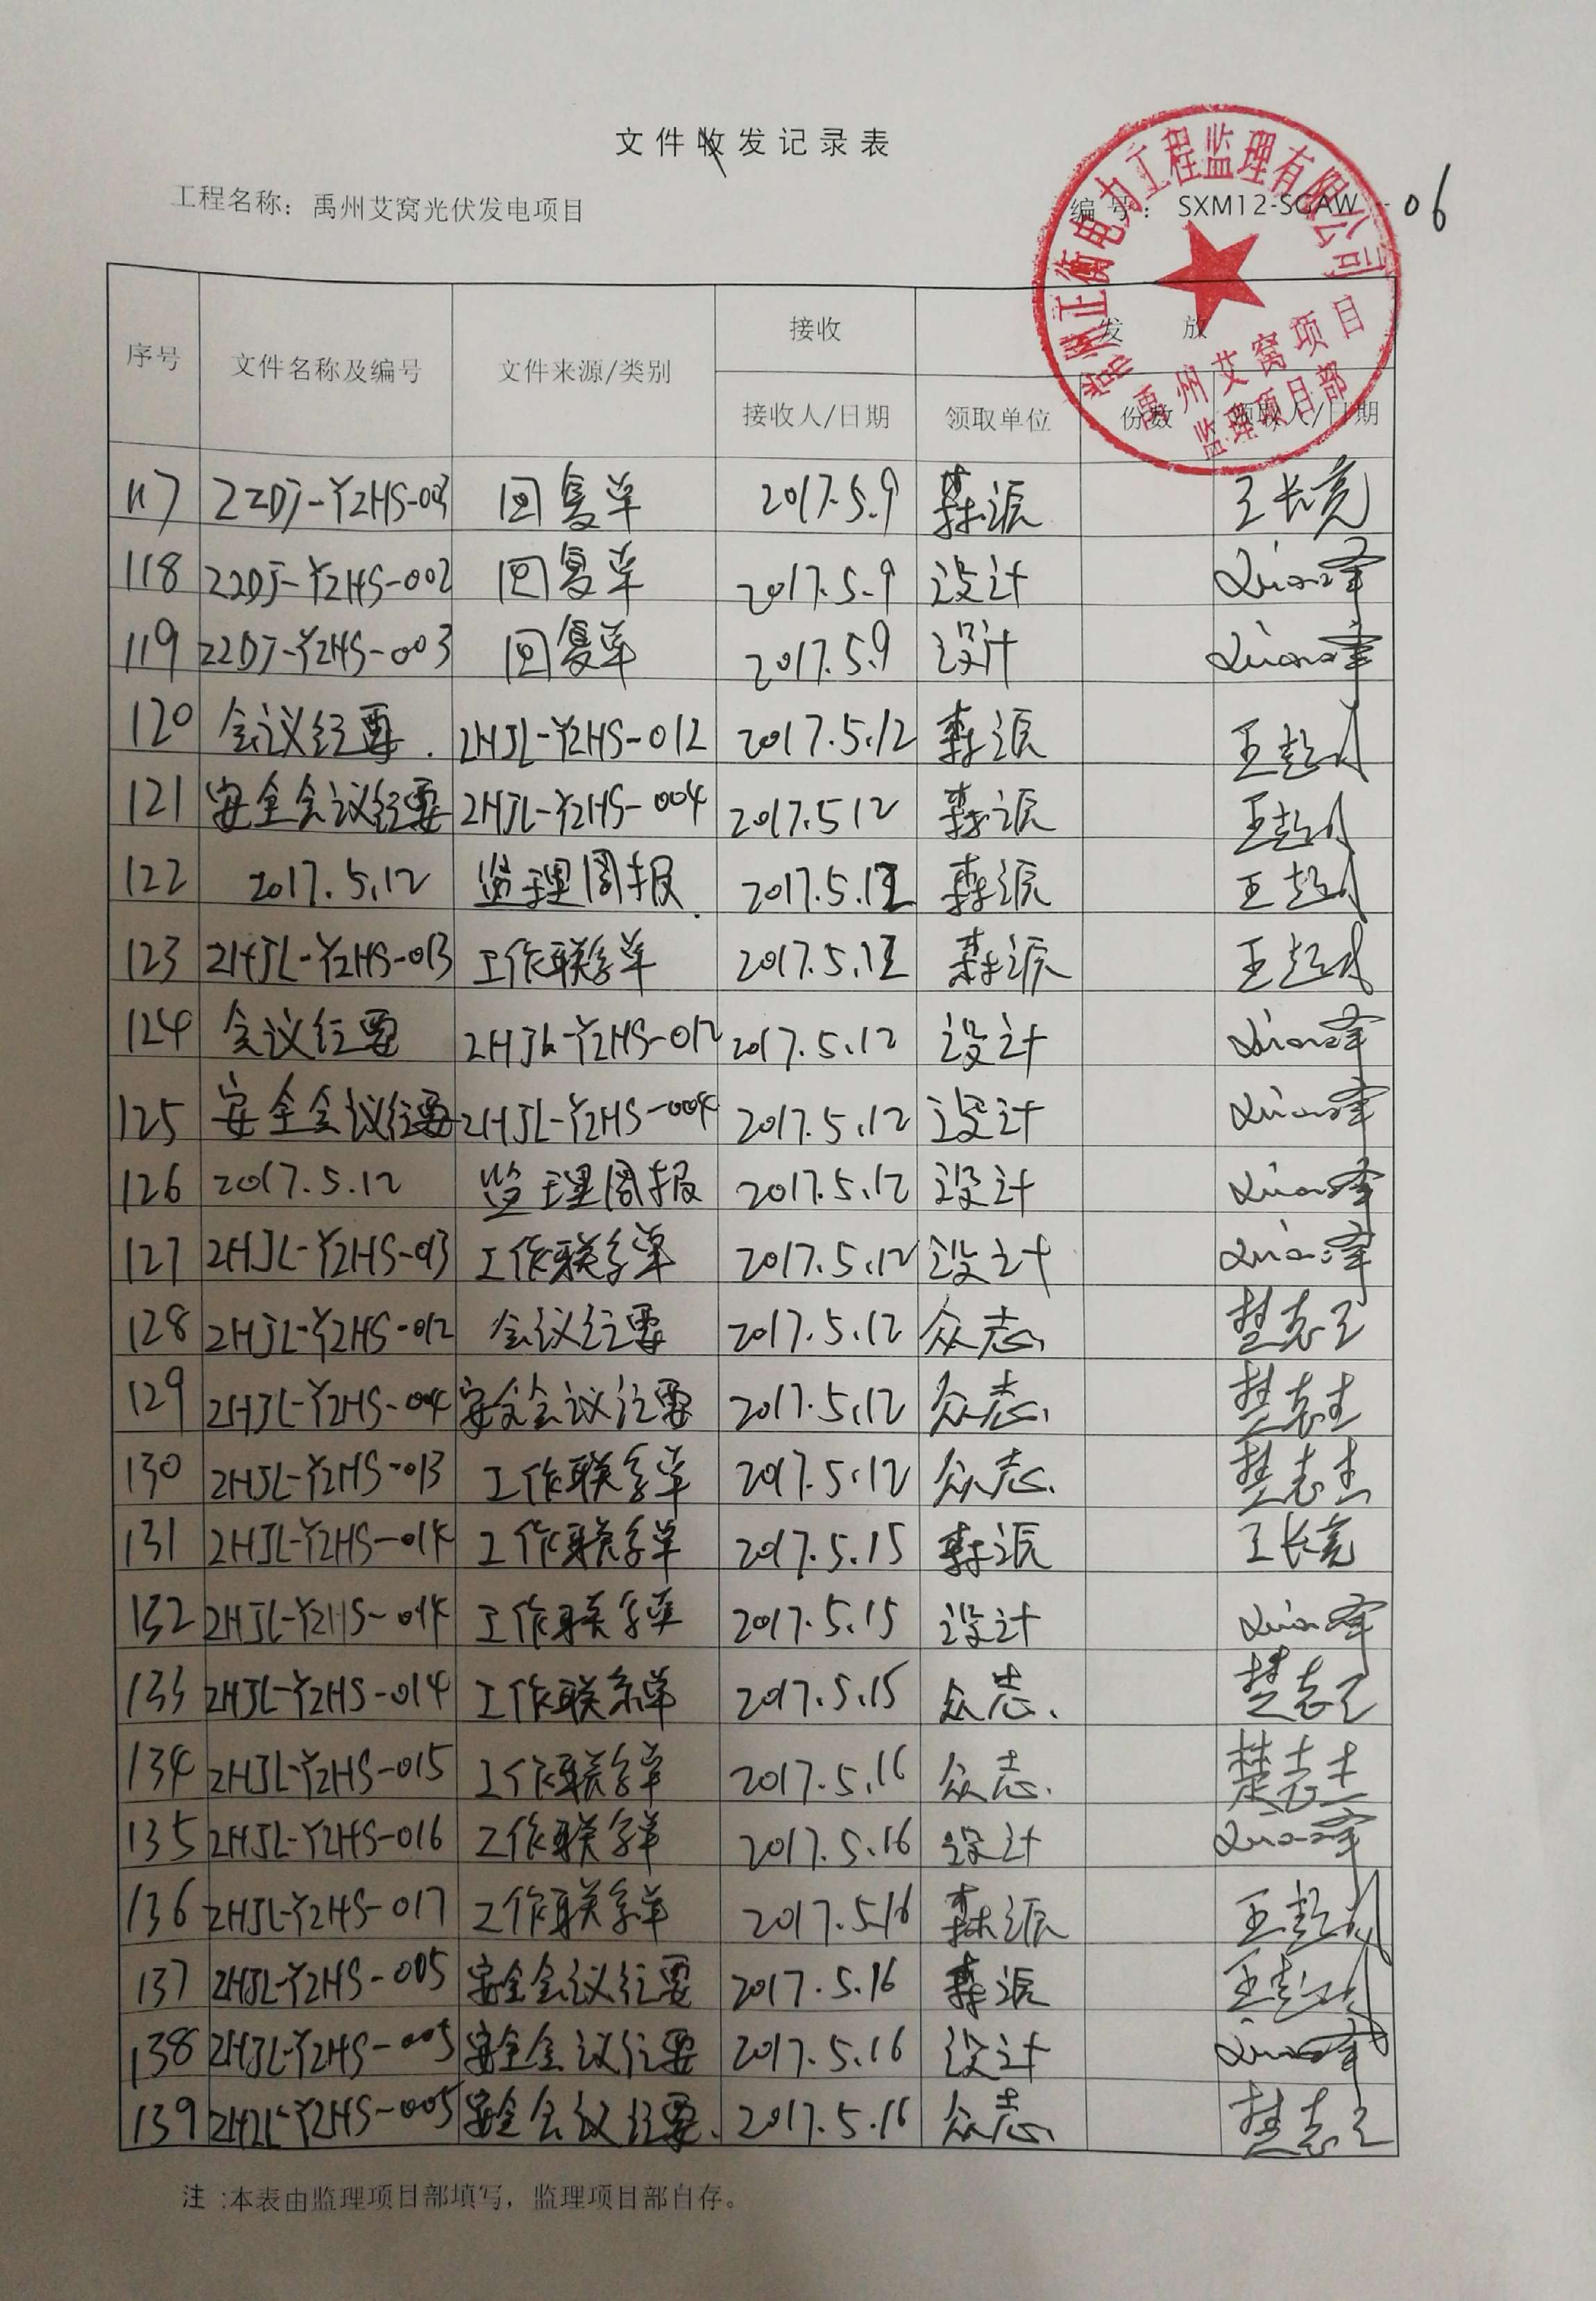 文件收发记录表
工程名称：禹州艾窝光伏发电项目 编号：SXM12-SGAW-06
常州正衡电力工程监理有限公司
禹州艾窝项目
监理项目部
序号 文件名称及编号 文件来源/类别 接收 发放
接收人/日期 领取单位 份数 领取人/日期
117 ZZDJ-YZHS-003 回复单 2017.5.9 森源 王长亮
118 ZZDJ-YZHS-002 回复单 2017.5.9 设计
119 ZZDJ-YZHS-003 回复单 2017.5.9 设计
120 会议纪要 ZHJL-YZHS-012 2017.5.12 森源
121 安全会议纪要 ZHJL-YZHS-004 2017.5.12 森源
122 2017.5.12 监理周报 2017.5.12 森源
123 ZHJL-YZHS-013 工作联系单 2017.5.12 森源
124 会议纪要 ZHJL-YZHS-012 2017.5.12 设计
125 安全会议纪要 ZHJL-YZHS-004 2017.5.12 设计
126 2017.5.12 监理周报 2017.5.12 设计
127 ZHJL-YZHS-013 工作联系单 2017.5.12 设计
128 ZHJL-YZHS-012 会议纪要 2017.5.12 众志 楚志王
129 ZHJL-YZHS-004 安全会议纪要 2017.5.12 众志
130 ZHJL-YZHS-013 工作联系单 2017.5.12 众志
131 ZHJL-YZHS-014 工作联系单 2017.5.15 森源 王长亮
132 ZHJL-YZHS-014 工作联系单 2017.5.15 设计
133 ZHJL-YZHS-014 工作联系单 2017.5.15 众志
134 ZHJL-YZHS-015 工作联系单 2017.5.16 众志
135 ZHJL-YZHS-016 工作联系单 2017.5.16 设计
136 ZHJL-YZHS-017 工作联系单 2017.5.16 森源
137 ZHJL-YZHS-005 安全会议纪要 2017.5.16 森源
138 ZHJL-YZHS-005 安全会议纪要 2017.5.16 设计
139 ZHJL-YZHS-005 安全会议纪要 2017.5.16 众志
注：本表由监理项目部填写，监理项目部自存。